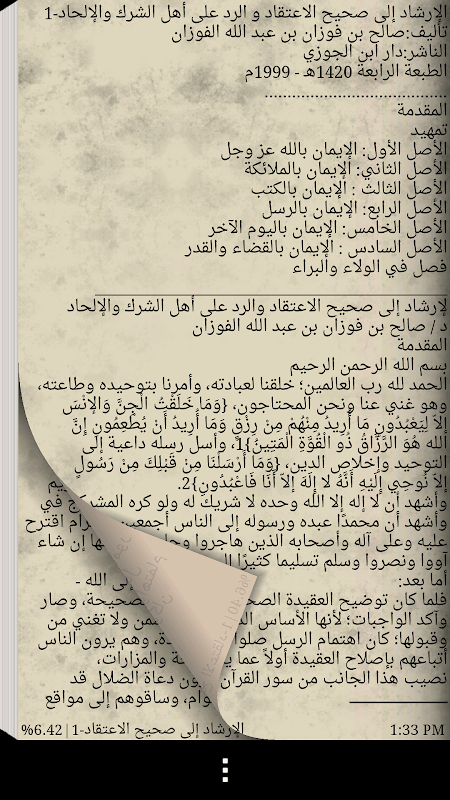 الإرشاد إلى صحيح الاعتقاد و الرد على أهل الشرك والإلحاد-1
تأليف:صالح بن فوزان بن عبد الله الفوزان
الناشر:دار ابن الجوزي
الطبعة الرابعة 1420هـ - 1999م
......................................
المقدمة
تمهيد
الأصل الأول: الإيمان بالله عز وجل
الأصل الثاني: الإيمان بالملائكة
الأصل الثالث : الإيمان بالكتب
الأصل الرابع: الإيمان بالرسل
الأصل الخامس: الإيمان باليوم الآخر
الأصل السادس : الإيمان بالقضاء والقدر
فصل في الولاء والبراء
لإرشاد إلى صحيح الاعتقاد والرد على أهل الشرك والإلحاد
د / صالح بن فوزان بن عبد الله الفوزان
المقدمة
بسم الله الرحمن الرحيم
الحمد لله رب العالمين؛ خلقنا لعبادته، وأمرنا بتوحيده وطاعته،
وهو غني عنا ونحن المحتاجون، {وَمَا خَلَقْتُ الْجِنَّ وَالإِنْسَ
إِلاَّ لِيَعْبُدُونِ مَا أُرِيدُ مِنْهُمْ مِنْ رِزْقٍ وَمَا أُرِيدُ أَنْ يُطْعِمُونِ إِنَّ
الله هُوَ الرَّزَّاقُ ذُو الْقُوَّةِ الْمَتِينُ}1 وأسل رسله داعية إلى
التوحيد وإخلاص الدين، {وَمَا أَرْسَلْنَا مِنْ قَبْلِكَ مِنْ رَسُولٍ
إِلاَّ نُوحِي إِلَيْهِ أَنَّهُ لا إِلَهَ إِلاَّ أَنَا فَاعْبُدُونِ}2.
وأشهد أن لا إله إلا الله وحده لا شريك له ولو كره المشركون في
وأشهد أن محمدًا عبده ورسوله إلى الناس أجمعين اقترح
عليه وعلى آله وأصحابه الذين هاجروا إن شاء
آووا ونصروا وسلم تسليما كثيرًا
أما بعد: إلى الله -
فلما كان توضيح العقيدة الصحيحة، وصار
وأكد الواجبات؛ لأنها الأساس ولا تغني من
وقبولها؛ كان اهتمام الرسل وهم يرون الناس
أتباعهم بإصلاح العقيدة أولاً والمزارات،
نصيب هذا الجانب من سور القرآن دعاة الضلال قد
وساقوهم إلى مواقع
1:33 PM
الإرشاد إلى صحيح الاعتقاد-1 | 6.42%